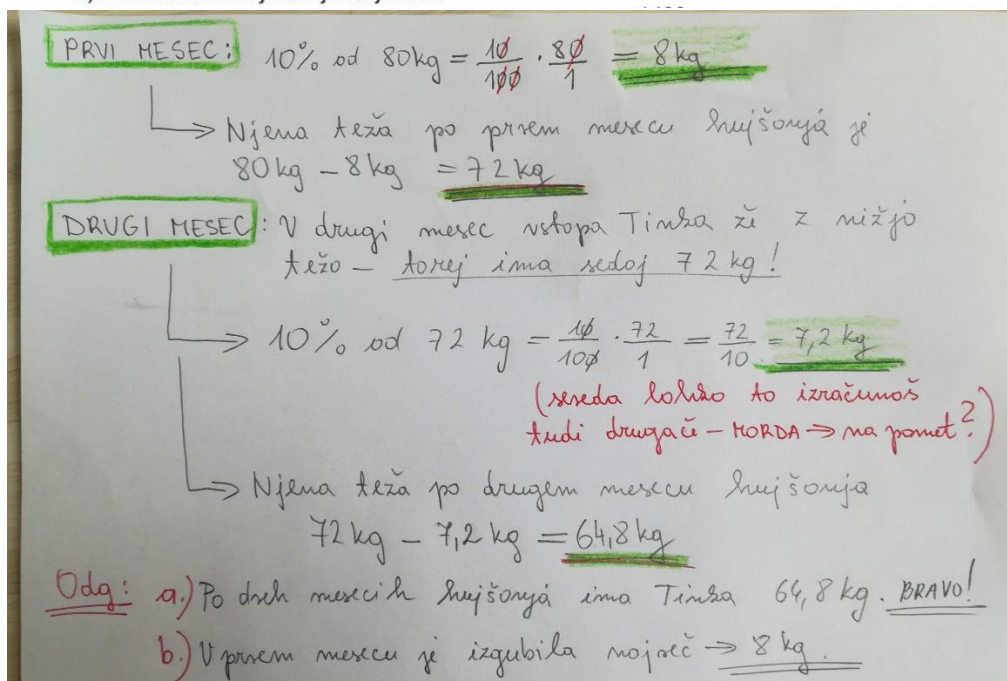 PRVI MESEC: 10% od 80kg = 10/100 · 80/1 = 8 kg
Njena teža po prvem mesecu hujšanja je
80 kg - 8 kg = 72 kg
DRUGI MESEC: V drugi mesec vstopa Tinka že z nižjo
težo - torej ima sedaj 72 kg!
10% od 72 kg = 10/100 · 72/1 = 72/10 = 7,2 kg
(seveda lahko to izračunaš
tudi drugače - MORDA → na pamet?)
Njena teža po drugem mesecu hujšanja
72 kg - 7,2 kg = 64,8 kg
Odg: a.) Po dveh mesecih hujšanja ima Tinka 64,8 kg. BRAVO!
b.) V prvem mesecu je izgubila največ → 8 kg.